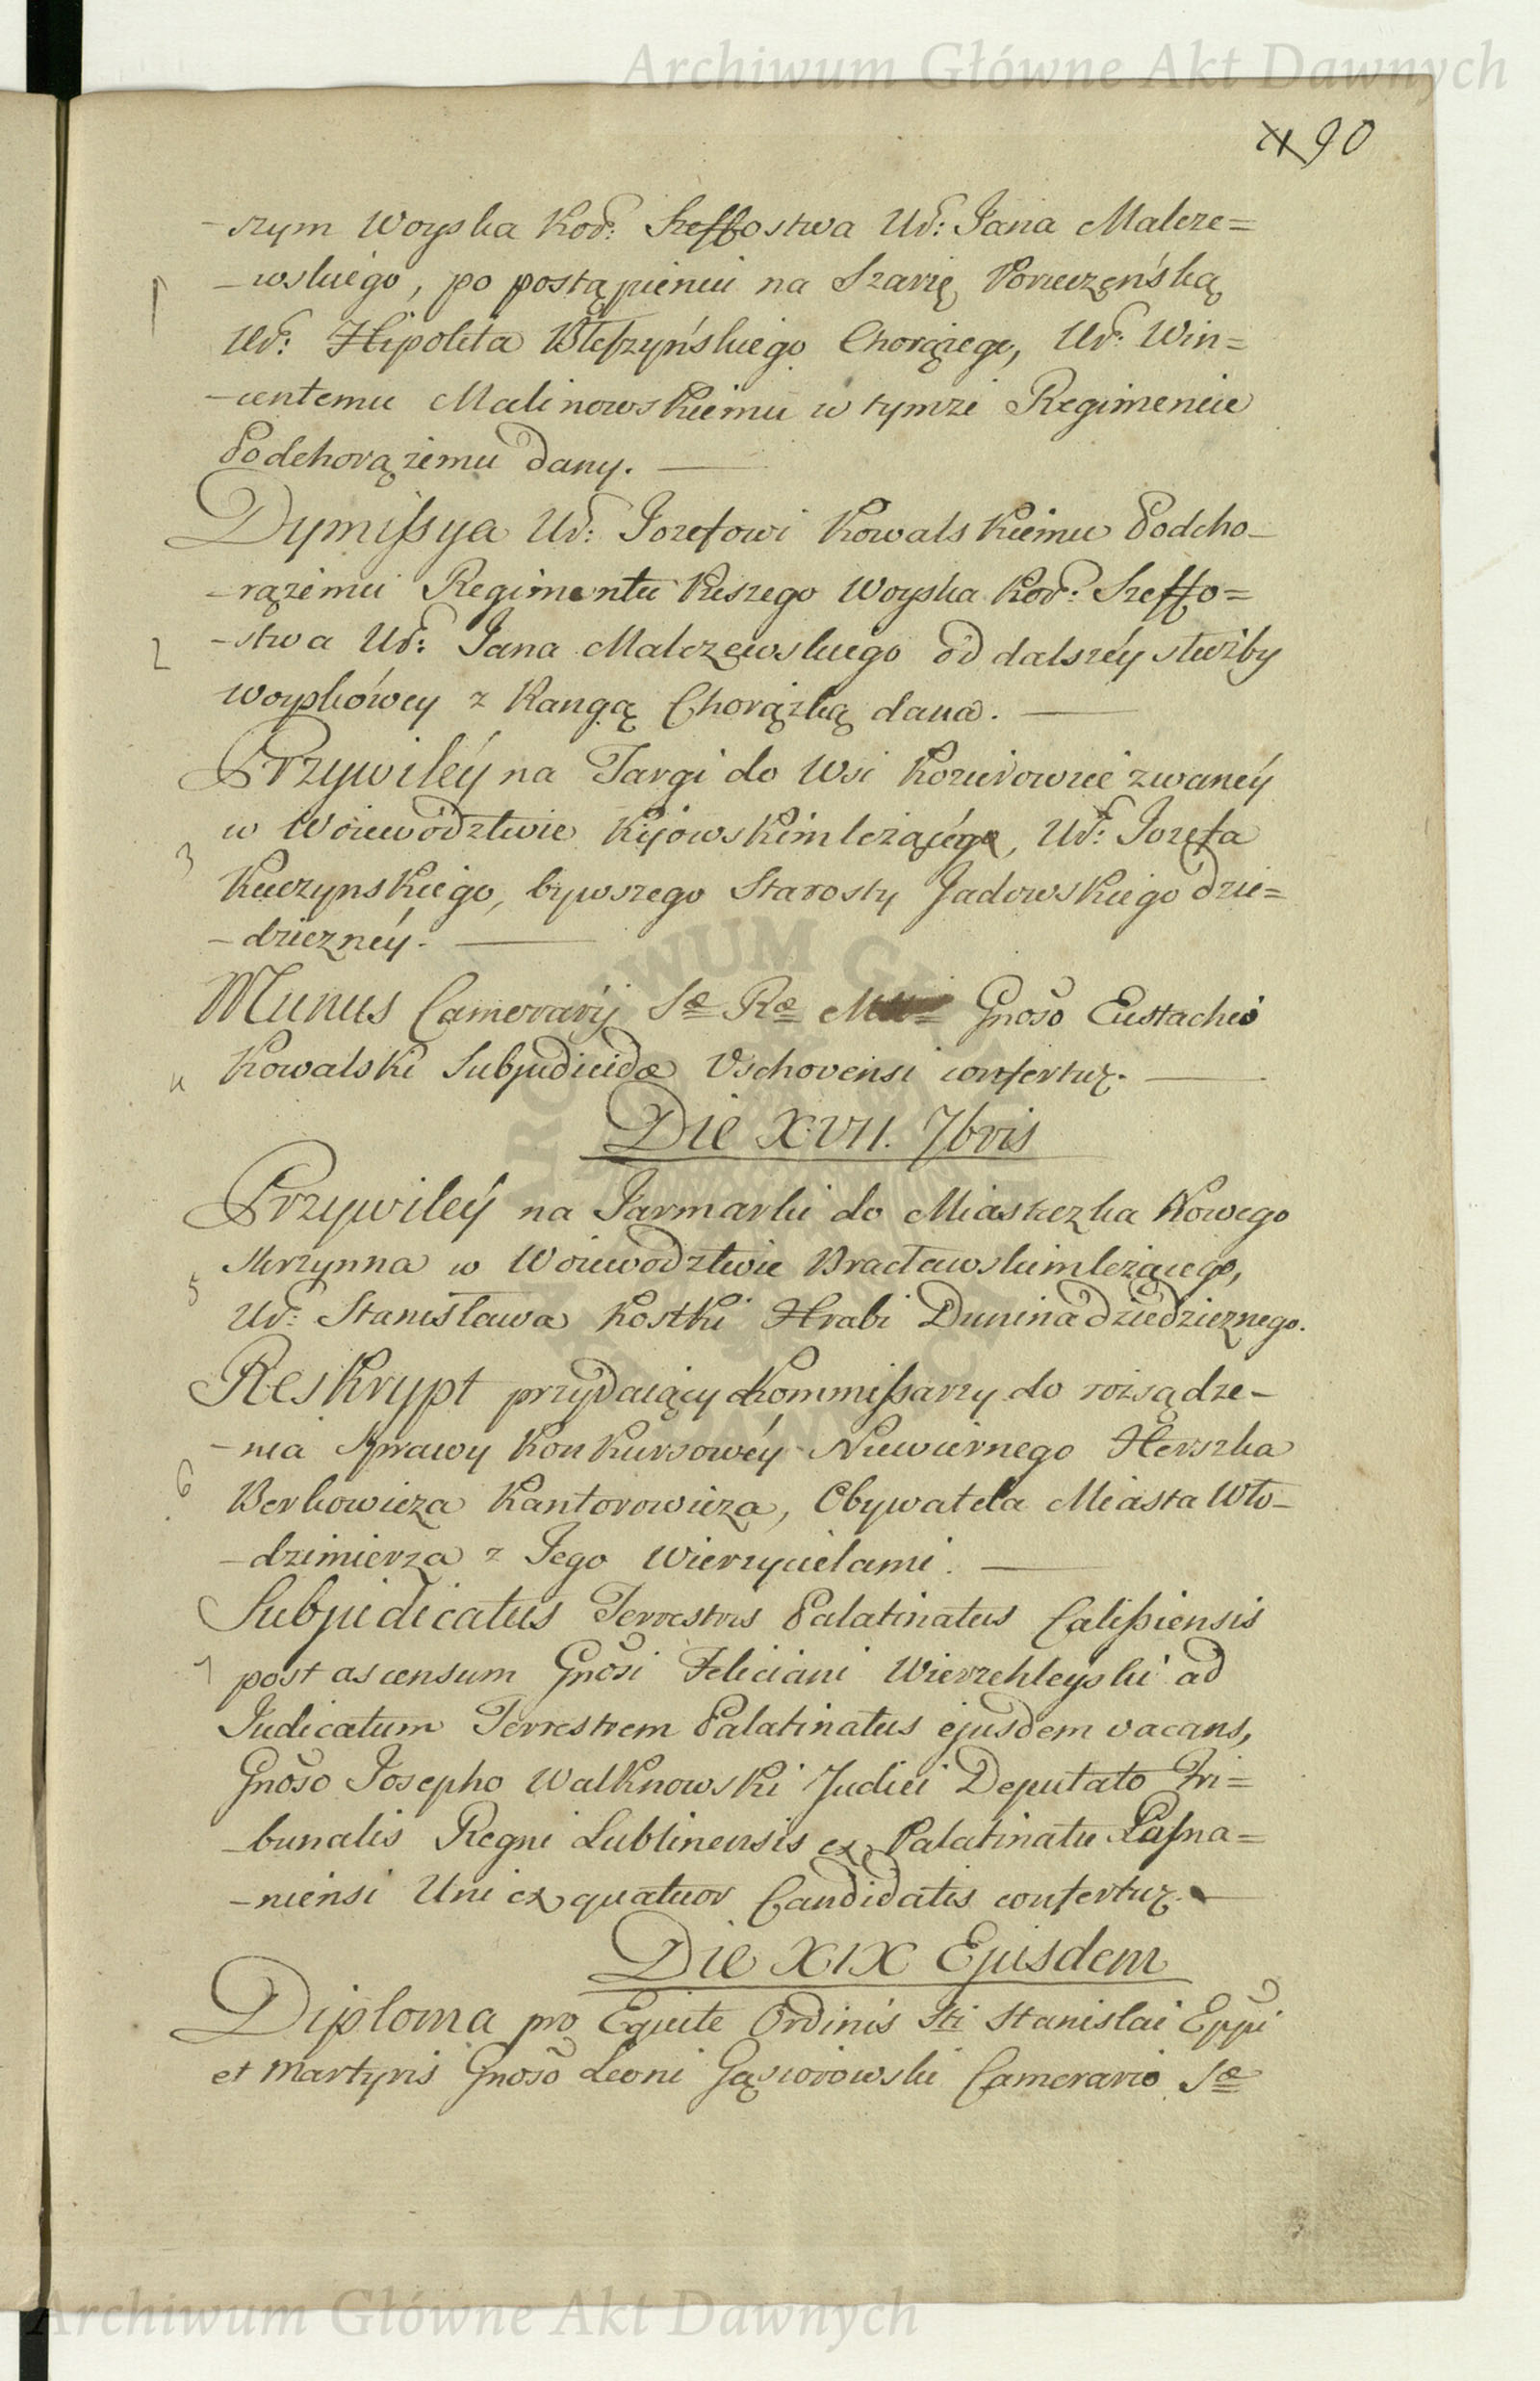 Archiwum Główne Akt Dawnych
90
-szym Woyska Kor: Szeffostwa Ur: Jana Malcze=
1
-wskiego, po postąpieniu na Szarżę Poruczęńską
Ur: Hipolita Błeszyńskiego Chorążego, Ur: Win=
-centemu Malinowskiemu w tymże Regimencie
Podchorążemu dany.
Dymissya Ur: Jozefowi Kowalskiemu Podcho-
-rążemu Regimentu Pieszego Woyska Kor: Szeffo=
2
-stwa Ur: Jana Malczewskiego od dalszéy służby
woyskówey z Rangą Chorążką dana.
Przywiléy na Targi do Wsi zwanéy
w Woiewództwie Kijowskim leżącéy, Ur: Jozefa
3
Kuczynskiego, bywszego Starosty Jadowskiego dzie=
-dzicznéy.
Munus Camerarij Sæ Ræ Gnoso Eustachio
4
Kowalski Subjudicidæ Vschovensi confertur.
Die XVII. 7bris
Przywiléy na Jarmarki do Miasteczka Nowego
Skrzynna w Woiewodztwie Bracławskim leżącego,
5
Ur: Stanisława Kostki Hrabi Dunina dziedzicznego.
Reskrypt przydaiący Kommissarzy do rozsądze-
-nia Sprawy Konkursowéy Niewiernego Herszka
6
Berkowicza Kantorowicza, Obywatela Miasta Wło-
-dzimierza z Jego Wierzycielami.
Subjudicatus Terrestris Palatinatus Calissiensis
7
post ascensum Gnosi Feliciani Wierzchleyski ad
Judicatum Terrestrem Palatinatus ejusdem vacans,
Gnoso Josepho Walknowski Judici Deputato Tri=
-bunalis Regni Lublinensis ex Palatinatu Posna=
-niensi Uni ex quatuor Candidatis confertur.
Die XIX Ejusdem
Diploma pro Equite Ordinis Sti Stanislai Eppi
et Martyris Gnoso Leoni Gąsiorowski Camerario Sæ
Archiwum Główne Akt Dawnych